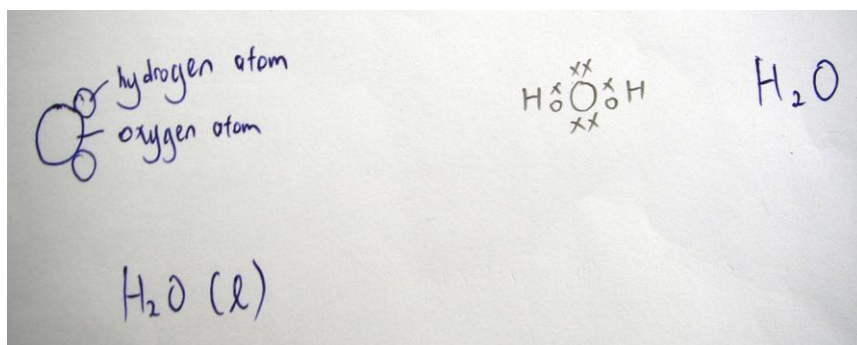 hydrogen atom
oxygen atom
xx
H x o O x o H
xx
H₂O
H₂O (l)